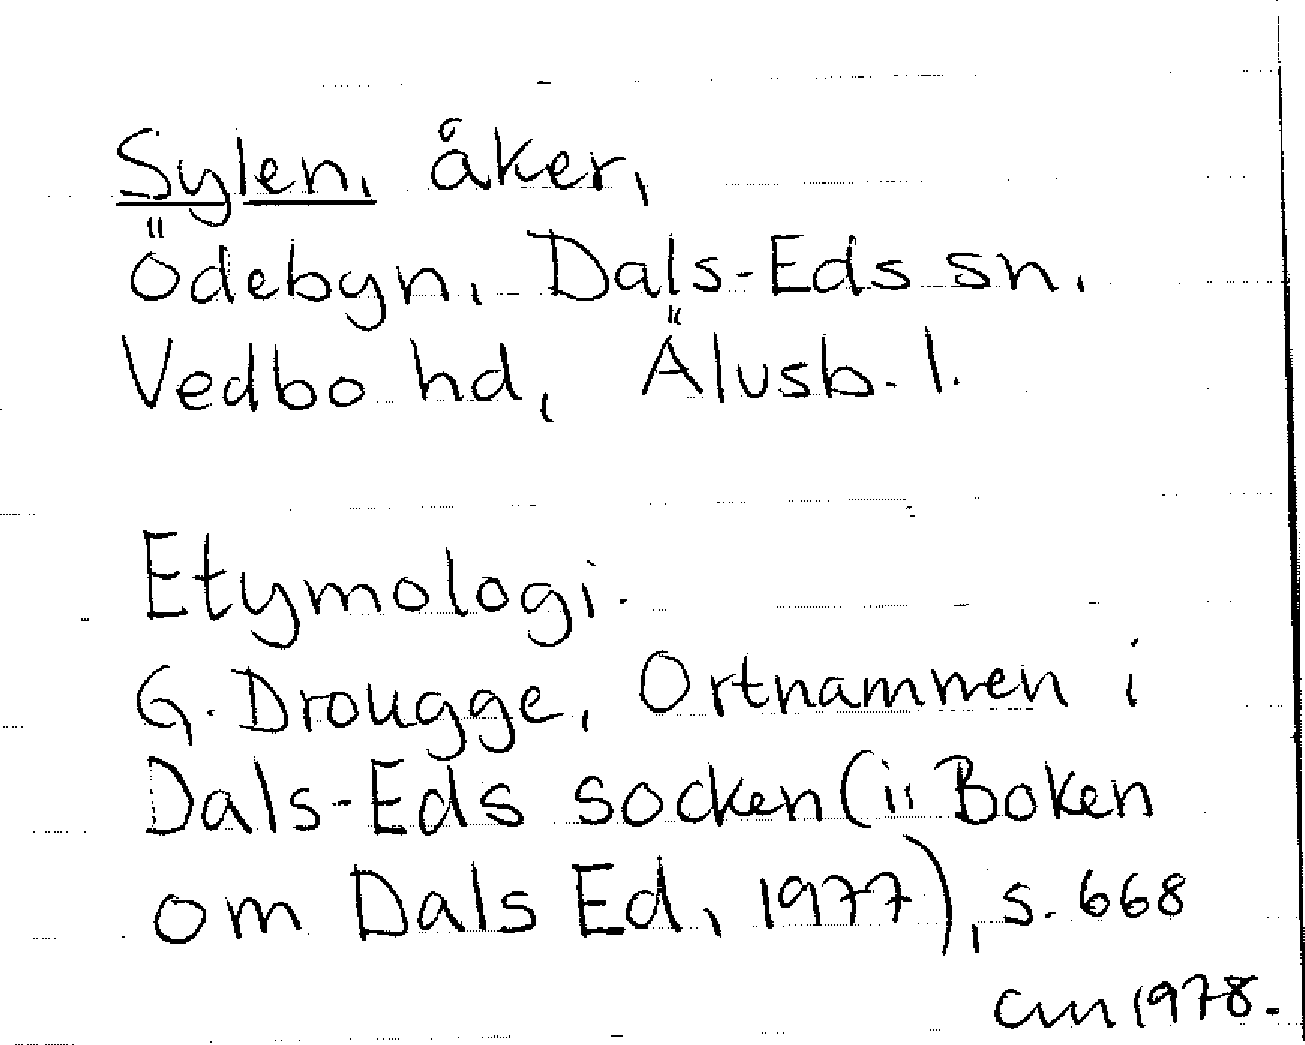 Sylen, åker,
Ödebyn, Dals-Eds sn.
Vedbo hd, Älvsb. l.
Etymologi.
G. Drougge, Ortnamnen i
Dals-Eds socken (i: Boken
om Dals Ed, 1977), s. 668
CM 1978.